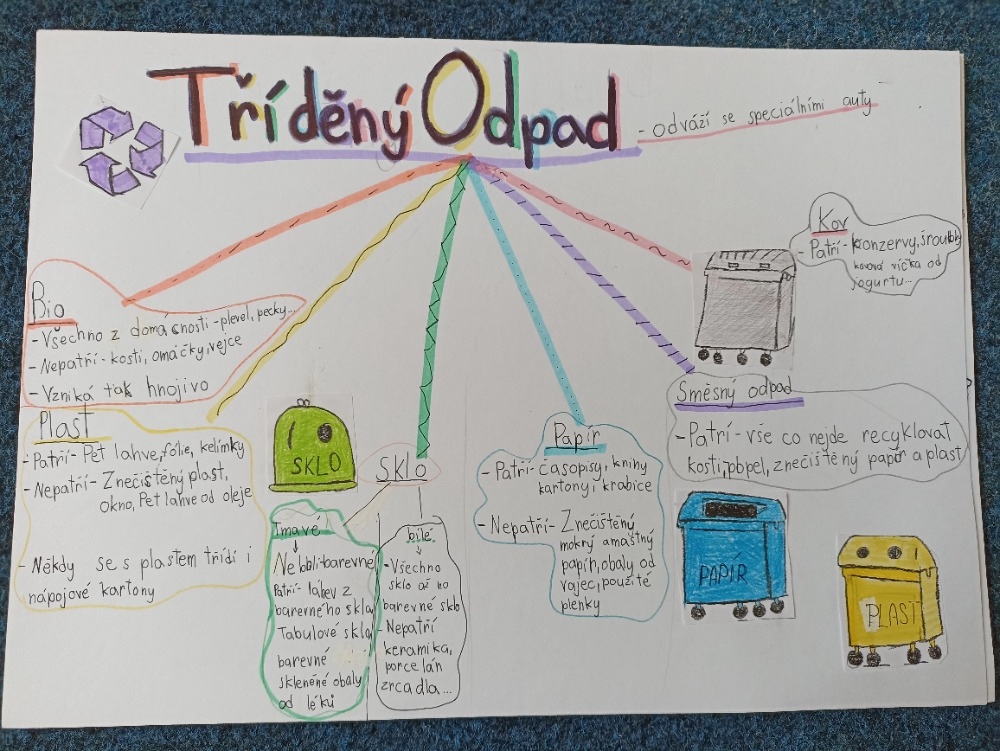 Tříděný Odpad
- odváží se speciálními auty
Kov
- Patří - konzervy, šroubky
kovová víčka od
jogurtu...
Bio
- Všechno z domácnosti - plevel, pecky...
- Nepatří - kosti, omáčky, vejce
- Vzniká tak hnojivo
Plast
- Patří - Pet lahve, fólie, kelímky
- Nepatří - Znečištěný plast,
okno, Pet lahve od oleje
- Někdy se s plastem třídí i
nápojové kartony
SKLO
SKlo
Tmavé
Patří - lahev z
barevného skla
Tabulové sklo
barevné
skleněné obaly
od léků
bílé
- Všechno
sklo až na
barevné sklo
- Nepatří
keramika,
porcelán
zrcadla...
Papír
- Patří - časopisy, knihy
kartony, krabice
- Nepatří - Znečištěný
mokrý a mastný
papír, obaly od
vajec, použité
plenky
Směsný odpad
- Patří - vše co nejde recyklovat
kosti, popel, znečištěný papír a plast
PAPÍR
PLAST